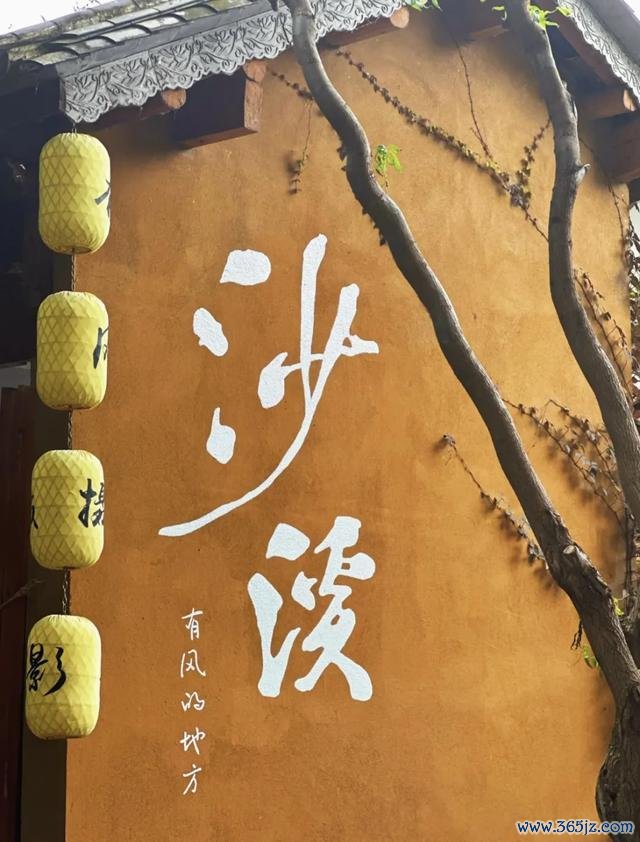 沙溪
有风的地方
摄
影
www.365jz.com